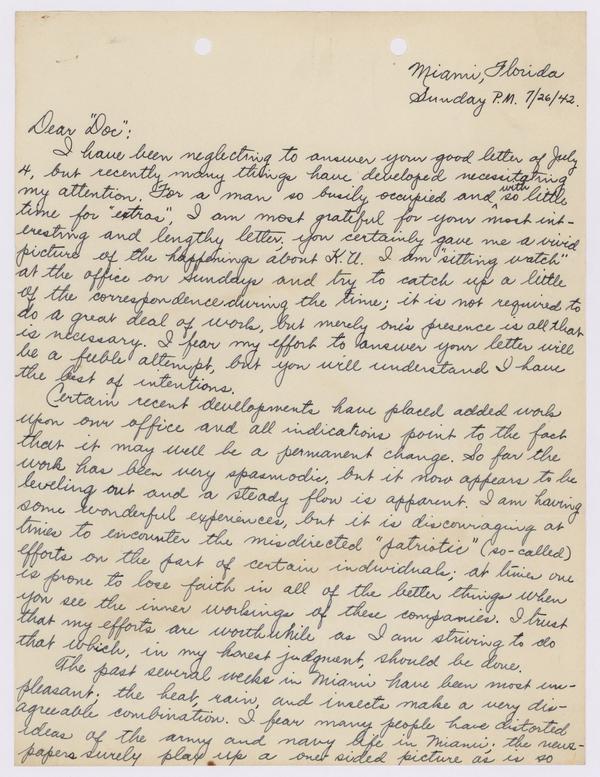 Miami, Florida
Sunday P.M. 7/26/42.
Dear "Doc":
I have been neglecting to answer your good letter of July
4, but recently many things have developed necessitating
my attention. For a man so busily occupied and with so little
time for "extras", I am most grateful for your most int-
eresting and lengthy letter; you certainly gave me a vivid
picture of the happenings about K.U. I am "sitting watch"
at the office on Sundays and try to catch up a little
of the correspondence during the time; it is not required to
do a great deal of work, but merely one's presence is all that
is necessary. I fear my effort to answer your letter will
be a feeble attempt, but you will understand I have
the best of intentions.
Certain recent developments have placed added work
upon our office and all indications point to the fact
that it may well be a permanent change. So far the
work has been very spasmodic, but it now appears to be
leveling out and a steady flow is apparent. I am having
some wonderful experiences, but it is discouraging at
times to encounter the misdirected "patriotic" (so-called)
efforts on the part of certain individuals; at times one
is prone to lose faith in all of the better things when
you see the inner workings of these companies. I trust
that my efforts are worthwhile as I am striving to do
that which, in my honest judgment, should be done.
The past several weeks in Miami have been most un-
pleasant; the heat, rain, and insects make a very dis-
agreeable combination. I fear many people have distorted
ideas of the army and navy life in Miami; the news-
papers surely play up a one sided picture as is so